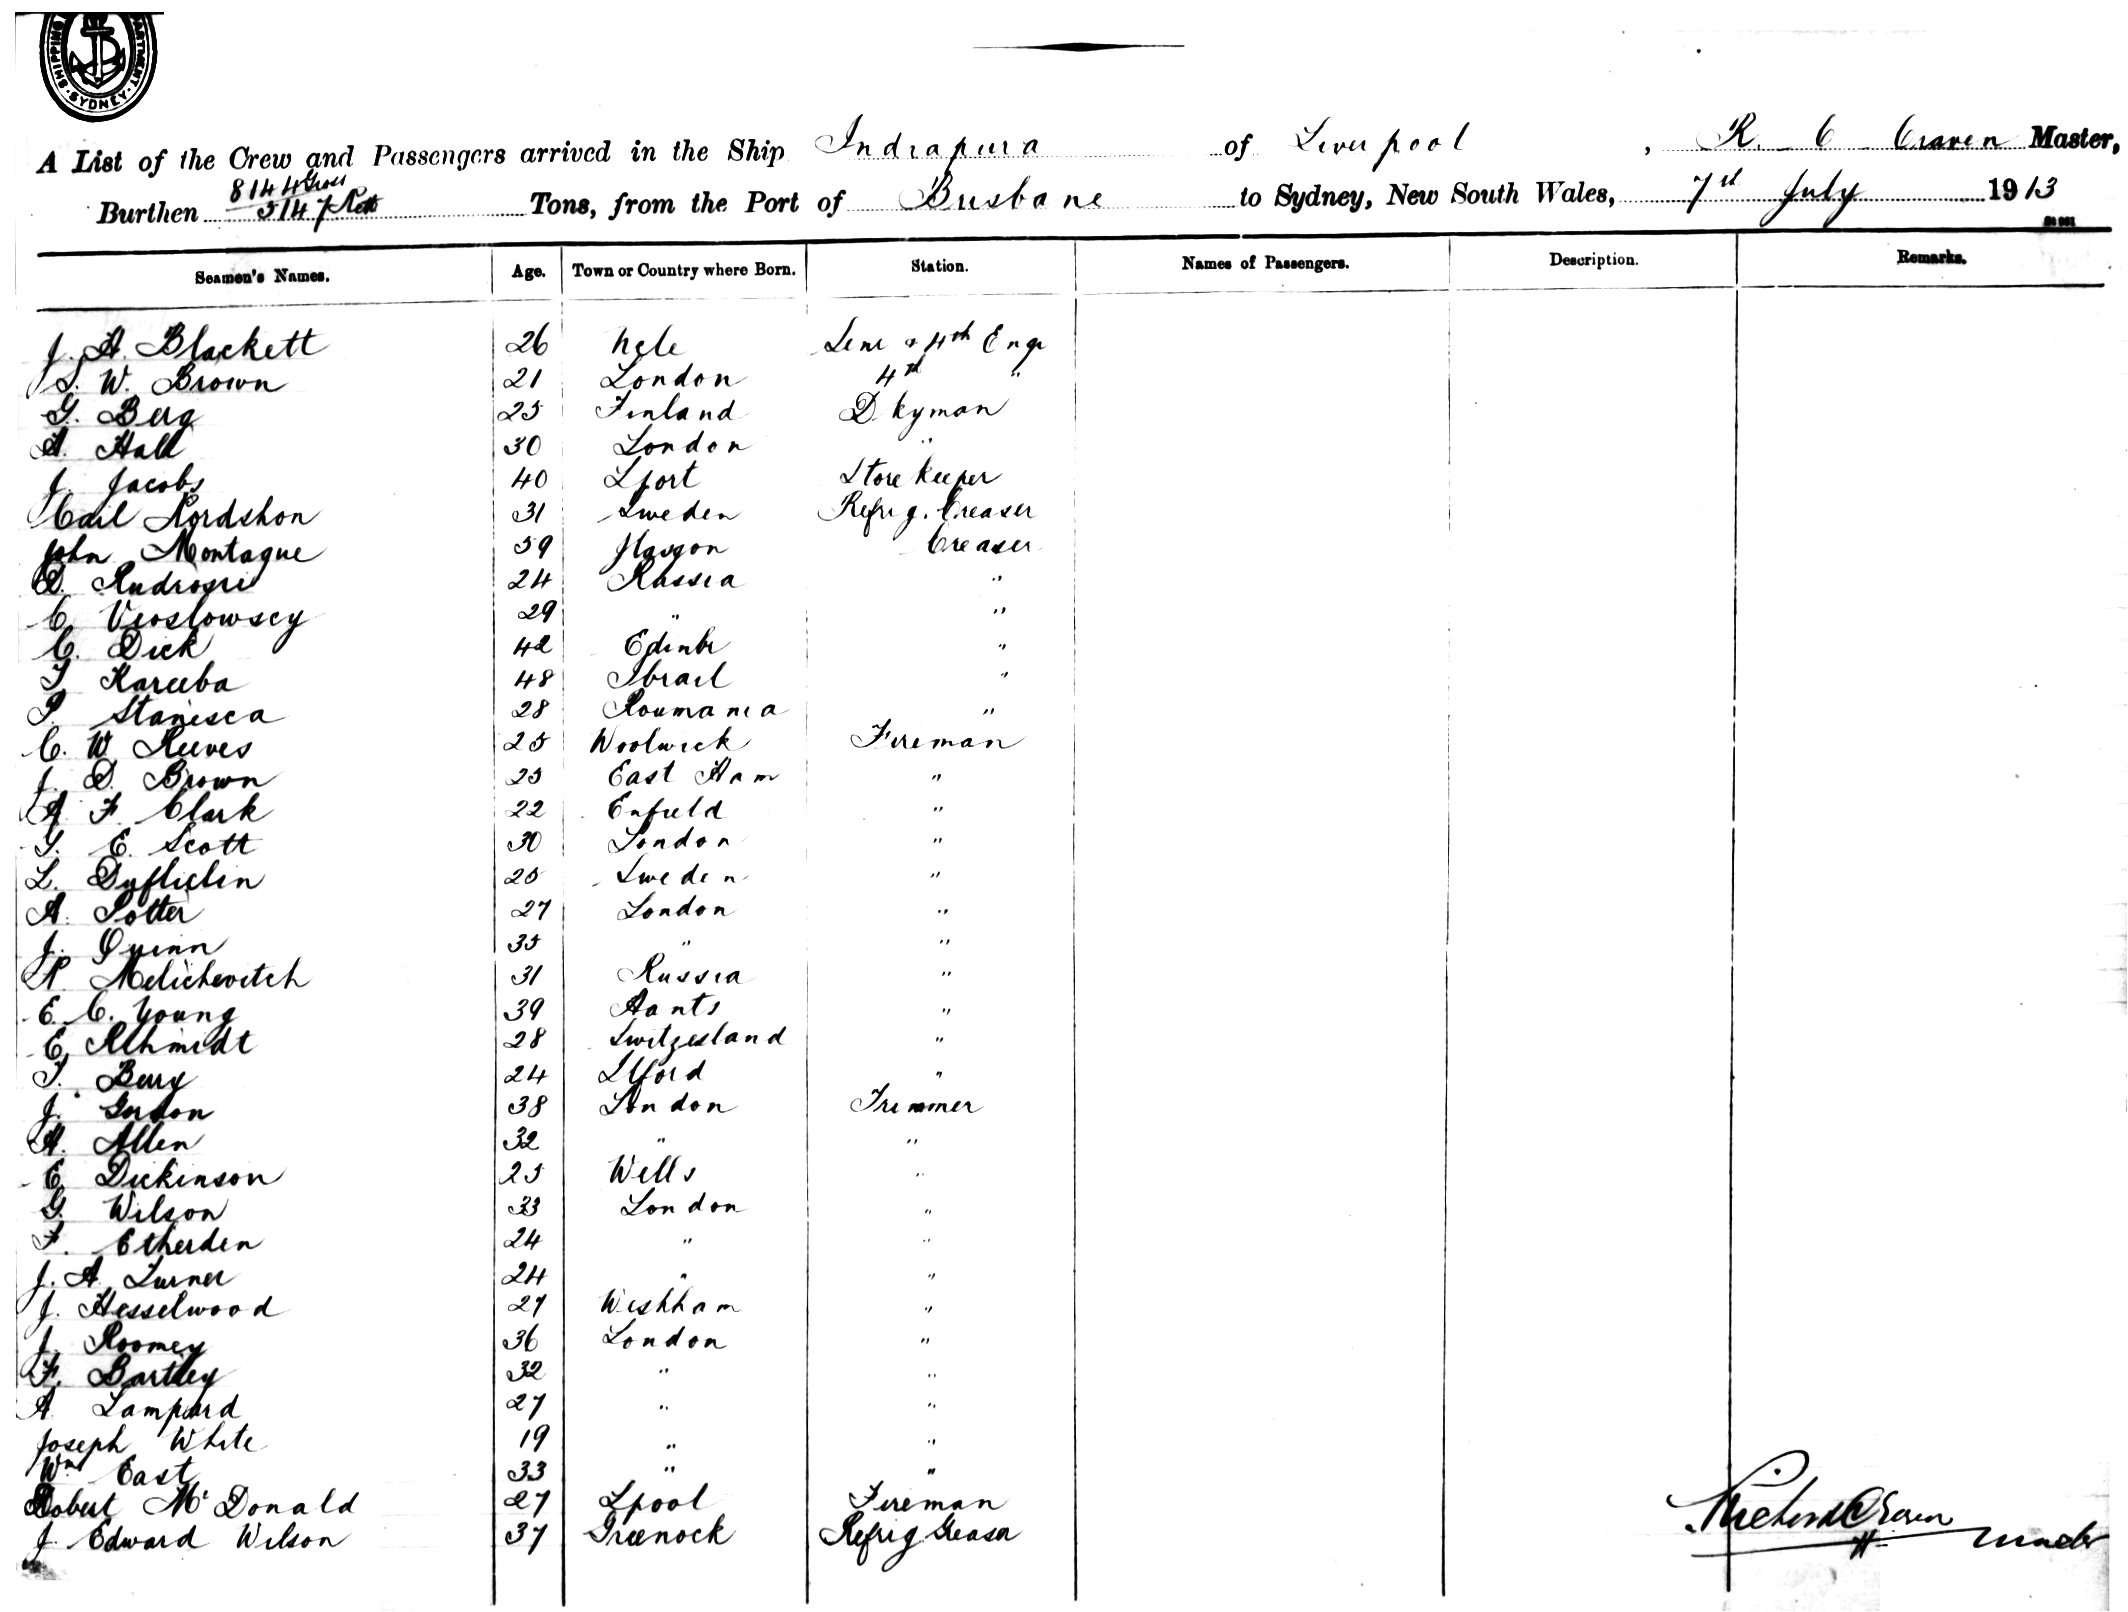 SHIPPING DEPARTMENT · SYDNEY ·
A List of the Crew and Passengers arrived in the Ship Indrapura of Liverpool, R. C Craven Master,
Burthen 8144 Gross 5147 Nett Tons, from the Port of Brisbane to Sydney, New South Wales, 7th July 1913
Seamen's Names. Age. Town or Country where Born. Station. Names of Passengers. Description. Remarks.
J. A. Blackett 26 4th Engr
S. W. Brown 21 London 4th "
G. Berg 25 Finland D. kyman
A. Hall 30 London "
J. Jacobs 40 Lport Store Keeper
Carl Nordshon 31 Sweden Refrig. Greaser
John Montague 59 Greaser
D. 24 Russia "
C. Veoslowscy 29 " "
C. Dick 42 Edinbr "
T Kareeba 48 Ibrail "
P. Stanesca 28 Roumania "
C. W Reeves 25 Woolwick Fireman
J. D. Brown 25 East Ham "
A. F. Clark 22 Enfield "
G. E. Scott 30 London "
L. 25 Sweden "
A. Potter 27 London "
J. Quinn 35 " "
N. Melichevitch 31 Russia "
E. C. Young 39 Hants "
E. Schmidt 28 Switzerland "
T. Berry 24 Ilford "
J. Gordon 38 London Trimmer
H. Allen 32 " "
E. Dickinson 25 Wells "
G. Wilson 33 London "
F. Etherden 24 " "
J. A. Turner 24 " "
J. Hesselwood 27 Weshham "
J. Roomey 36 London "
F. Bartley 32 " "
A. Lampard 27 " "
Joseph White 19 " "
Wm East 33 " "
Robert McDonald 27 Lpool Fireman
J. Edward Wilson 37 Greenock Refrig Greaser
Richard C Craven
Master